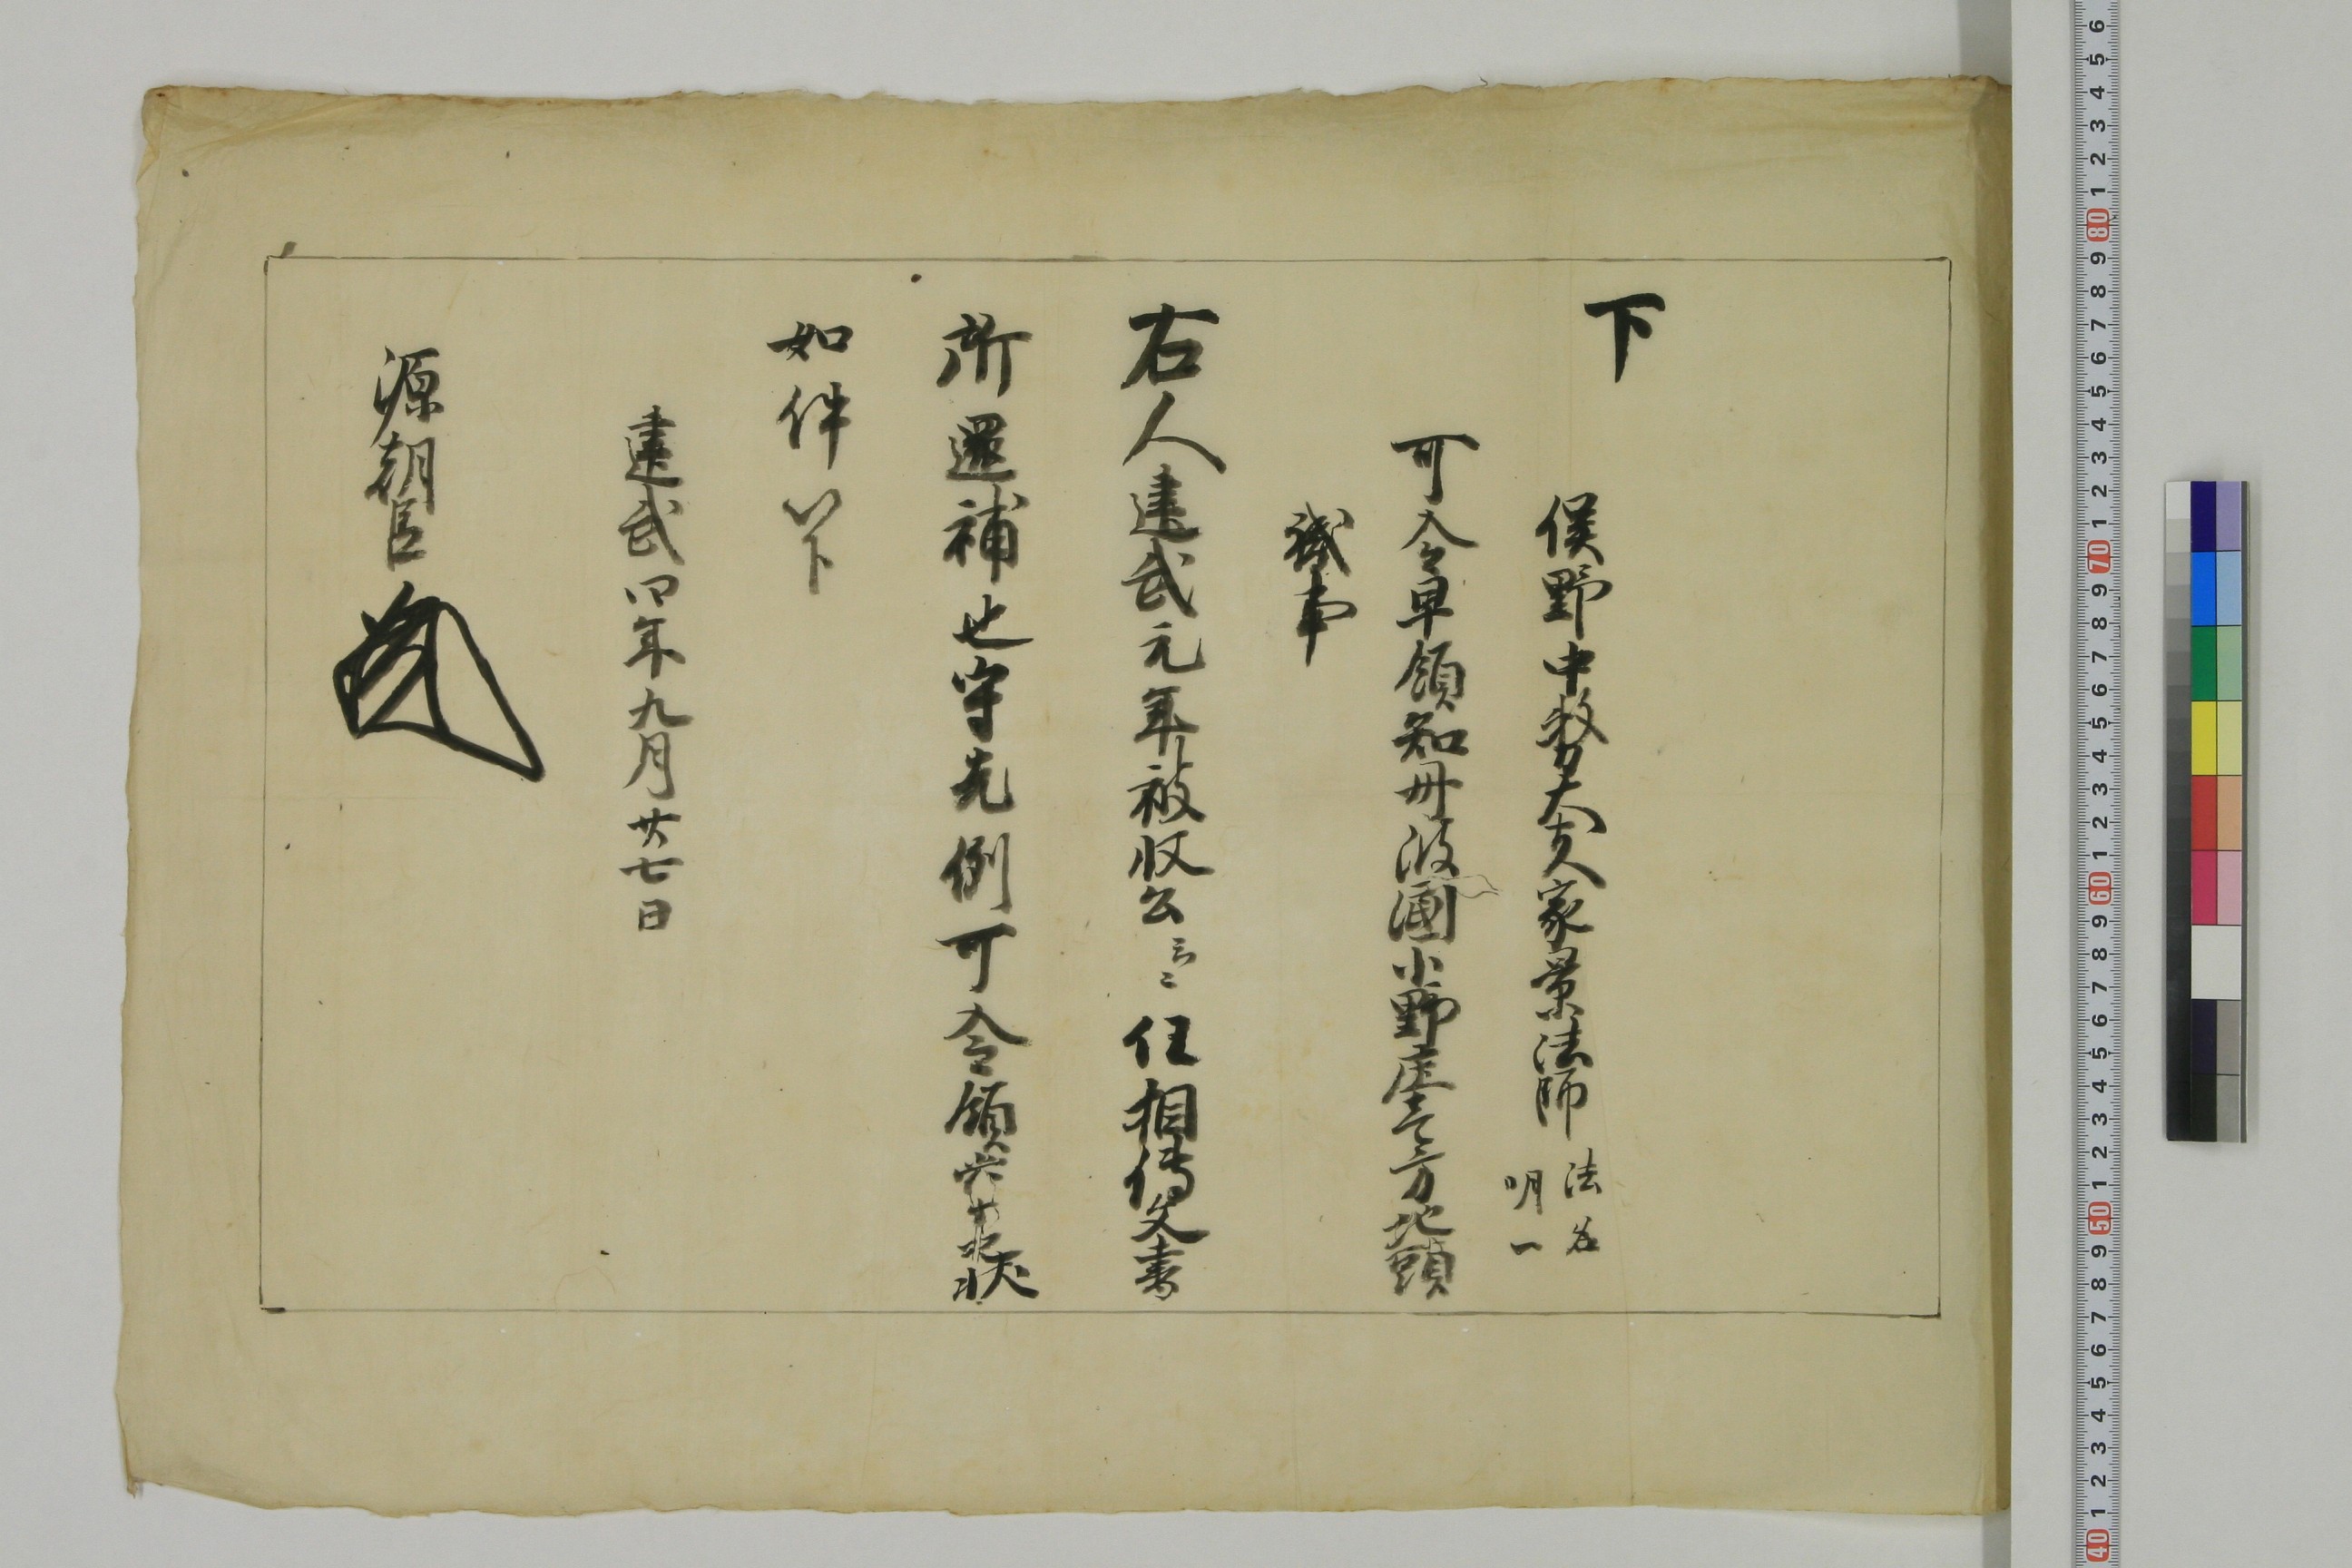 下
俣野中務大夫家景法師 法名
明一
可令早領知丹波國小野庄三方地頭
職事
右人建武元年被収公云々任相傳文書
所還補也守先例可令領掌之状
如件以下
建武四年九月廿七日
源朝臣